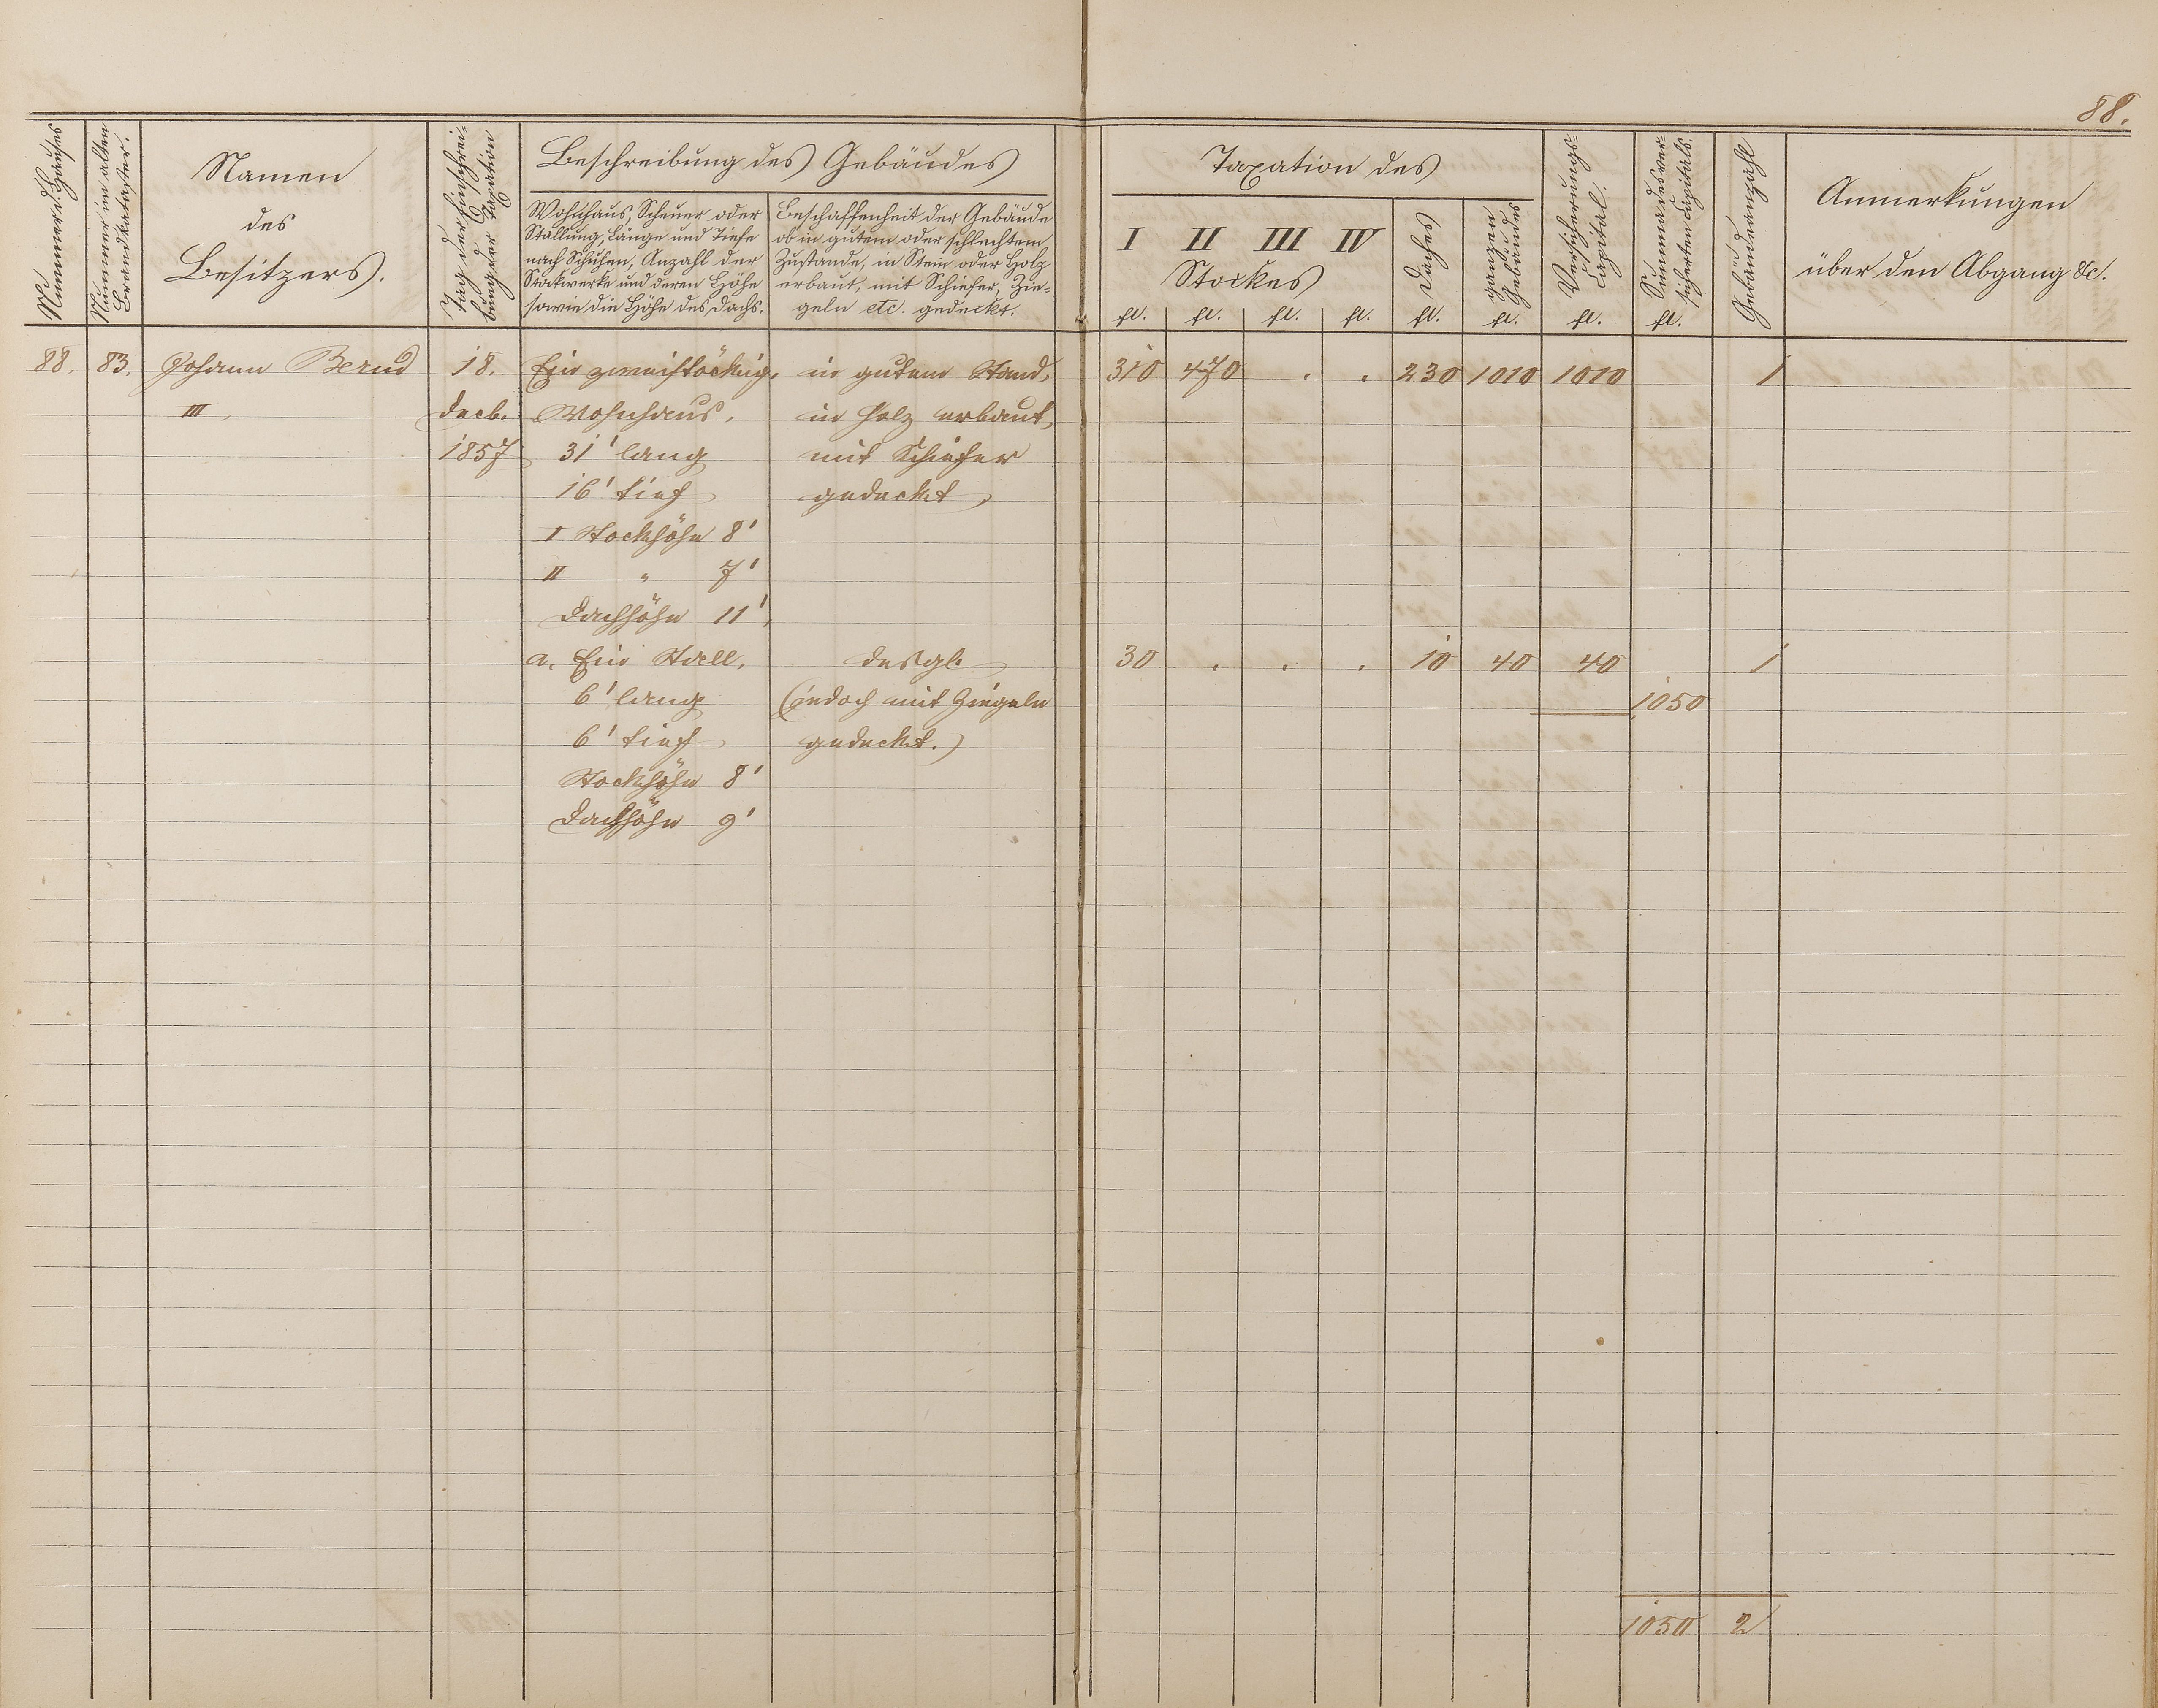 88.
Nummer d. Hauses
Nummer im alten
Brandkataster.
Namen
des
Besitzers.
Tag der Einschrei-
bung der Taxation
Beschreibung des Gebäudes
Wohnhaus, Scheuer oder
Stallung, Länge und Tiefe
nach Schuhen, Anzahl der
Stockwerke und deren Höhe
sowie die Höhe des Dachs.
Beschaffenheit der Gebäude
ob in gutem oder schlechtem
Zustande, in Stein oder Holz
erbaut, mit Schiefer, Zie-
geln etc. gedeckt.
Taxation des
I II III IV
Stockes
Daches
ganzen
Gebäudes
Versicherungs-
Capital.
Summa des ver-
sicherten Capitals.
Gebäudeanzahl
Anmerkungen
über den Abgang &c.
fl. fl. fl. fl. fl. fl. fl. fl.
88. 83. Johann Bernd 18. Ein zweistöckig. in gutem Stand, 310 470 . . 230 1010 1010 1
III, Decb. Wohnhaus, in Holz erbaut,
1857 31' lang mit Schiefer
16' tief, gedeckt,
I Stockhöhe 8'
II " 7'
Dachhöhe 11',
a. Ein Stall, desgl. 30 . . . 10 40 40 1
6' lang (jedoch mit Ziegeln 1050
6' tief gedeckt.)
Stockhöhe 8'
Dachhöhe 9'
1050 2